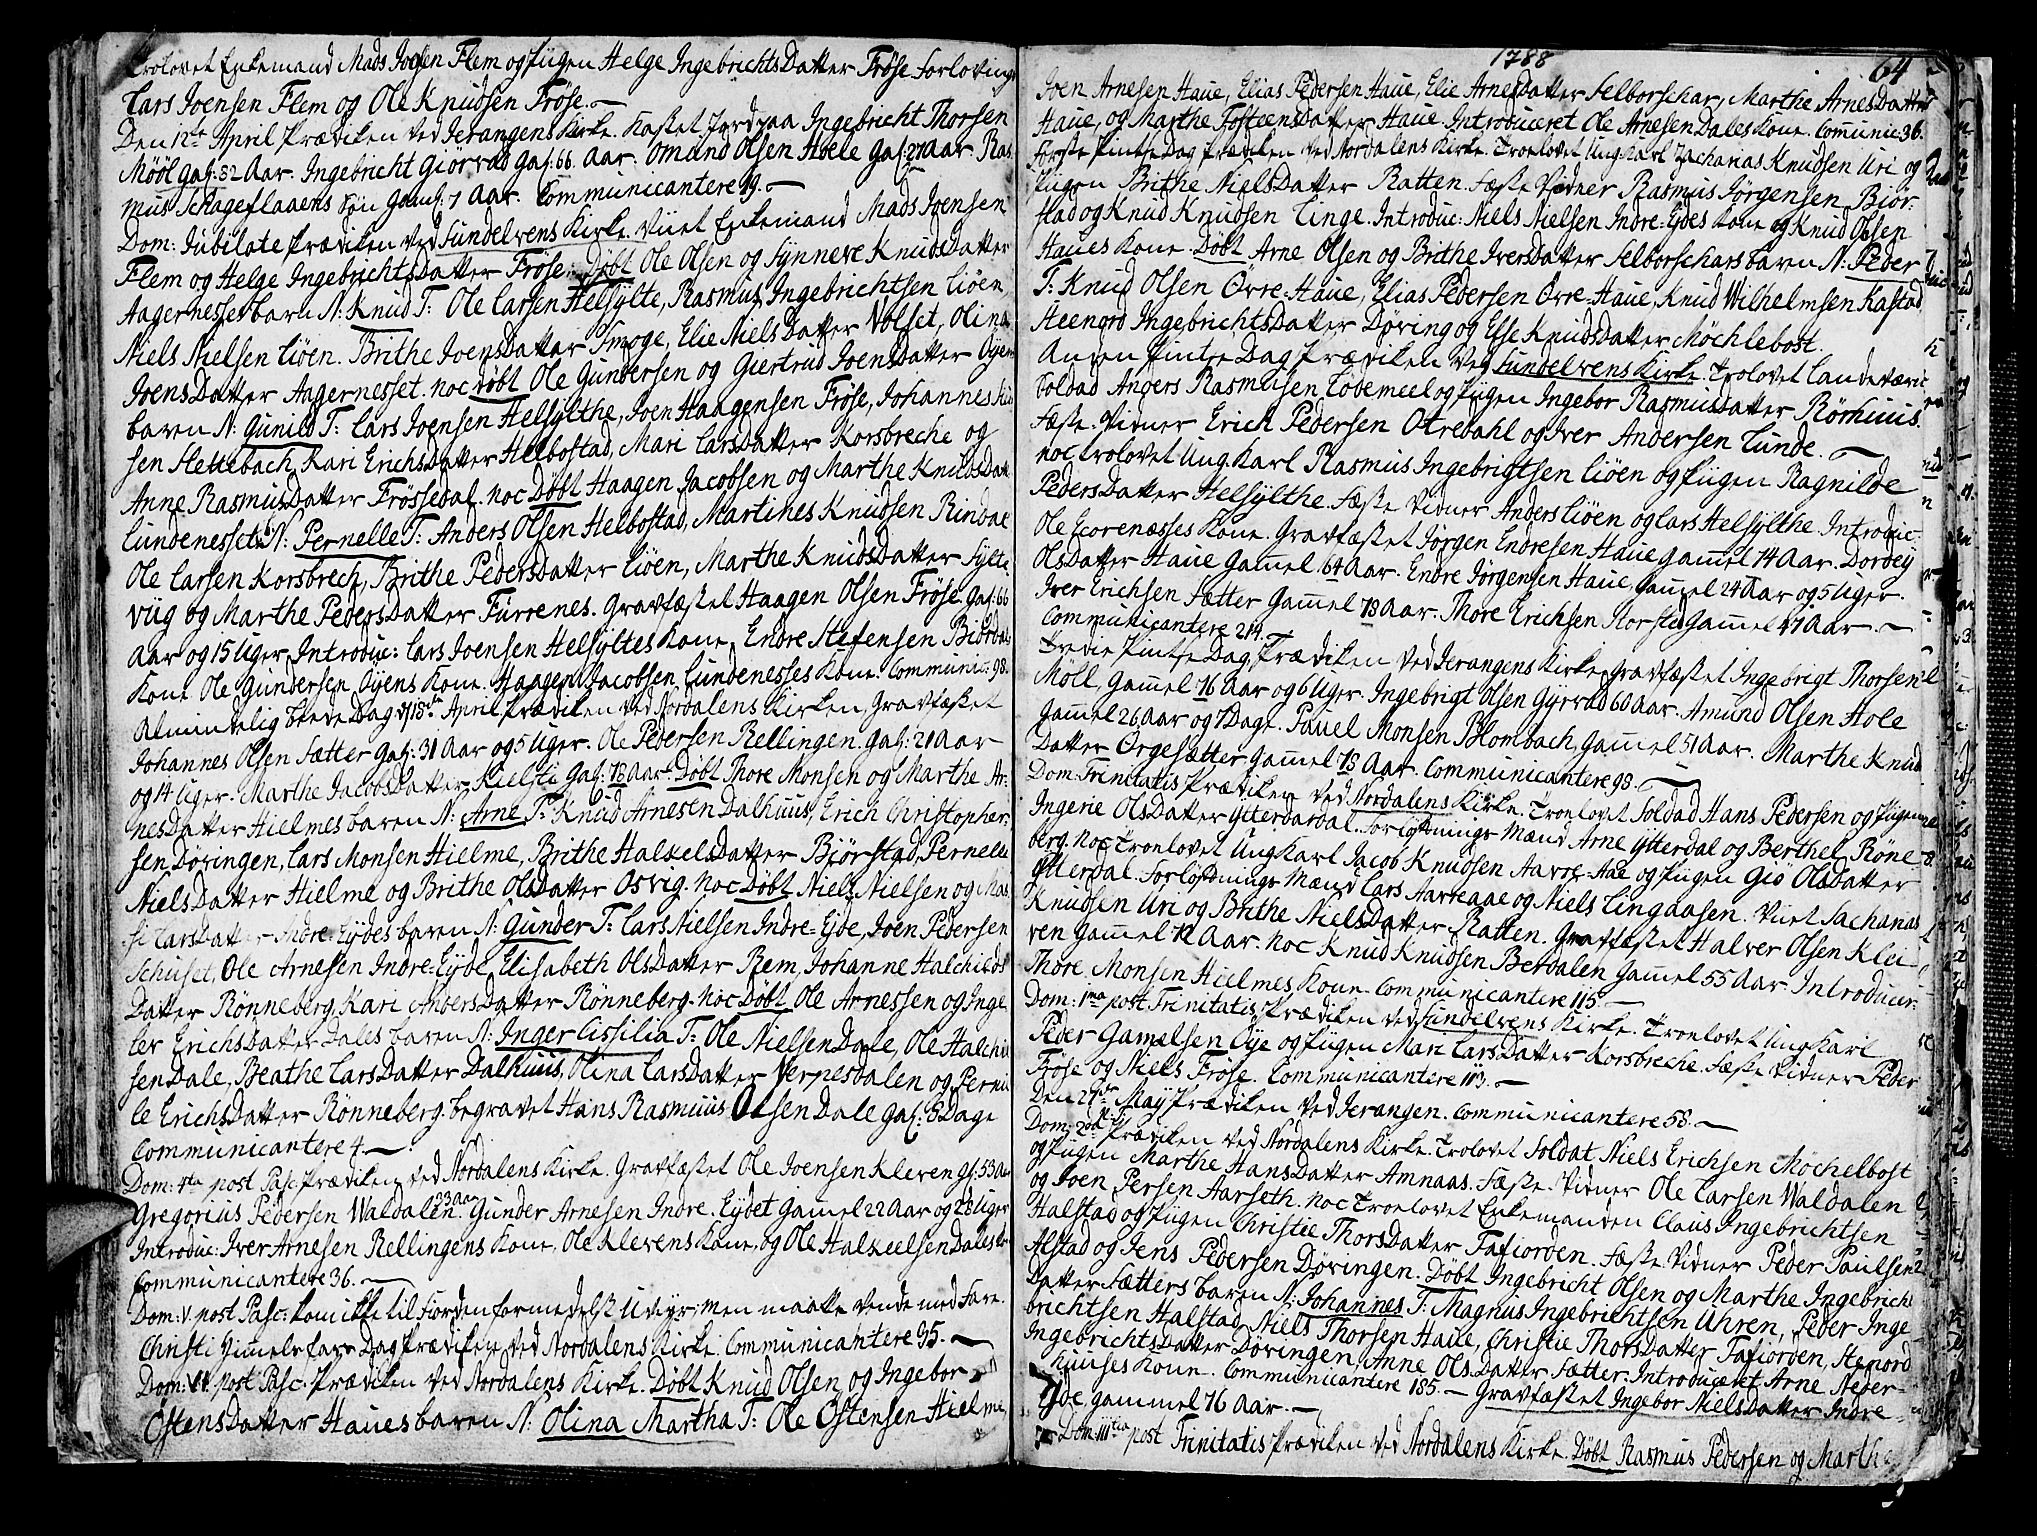 Trolovet Enkemand Mads Joensen Flem og Pigen Helge IngebrichtsDatter Fröse Forlovings
Lars Joensen Flem og Ole Knudsen Fröse.
Den 12te April Prædiken ved Jerangens Kirke. Kastet Jord paa Ingebricht Thorsen
Mööl Gaf: 82 Aar. Ingebricht Giörvad Gaf: 66 Aar. Omund Olsen Hoele Gaf: 27 Aar. Ras
mus Schageflaaens Sön Gamf: 7 Aar. Communicantere 99.
Dom: Jubilate Prædiken ved Sundelvens Kirke. Viiet Enkemand Mads Joensen
Flem og Helge IngebrichtsDatter Fröse. Döbt Ole Olsen og Synneve KnudsDatter
Aagernesses barn N: Knud T: Ole Larsen Helsylte, Rasmus Ingebrichtsen Liöen,
Niels Nielsen Liöen. Brithe JoensDatter Smoge, Elie NielsDatter Volset, Olina
JoensDatter Aagernesset. noc döbt Ole Gundersen og Giertrud JoensDatter Öyens
barn N: Gunild T: Lars Joensen Helsylthe, Joen Haagensen Fröse, Johannes
sen Slettebach, Kari ErichsDatter Helbostad, Mari LarsDatter Korsbreche og
Anne RasmusDatter Frössedal. noc Döbt Haagen Jacobsen og Marthe KnudsDatt
Lundenesset N: Pernelle T: Anders Olsen Helbostad, Martines Knudsen Rindal
Ole Larsen Korsbrech, Brithe PedersDatter Liöen, Marthe KnudsDatter Sylte
viig og Marthe PedersDatter Furrenes. Gravfæstet Haagen Olsen Fröse. Gaf: 66
Aar og 15 Uger. Introduc: Lars Joensen Helsyltes Kone, Endre Stefensen Biördals
Kone Ole Gundersen Öyens Kone. Haagen Jacobsen Lundenesses Kone. Communic: 98.
Almindelig bededag d. 18de April Prædiken ved Nordalens Kirken, Gravfæstet
Johannes Olsen Sætter Gaf: 31 Aar og 5 Uger. Ole Pedersen Rellingen. Gaf: 21 Aar
og 14 Uger. Marthe JacobsDatter Kielsti Gaf: 78 Aar. Döbt Thore Monsen og Marthe Ar-
nesDatter Hielmes baren N: Arne T: Knud Arnesen Dalhuus, Erich Christopher-
sen Döringen, Lars Monsen Hielme, Brithe HalkelsDatter Biörstad, Pernelle
NielsDatter Hielme og Brithe OlsDatter Osvig. noc Döbt Niels Nielsen og Mar
si LarsDatter Indre-Eydes baren N: Gunder T: Lars Nielsen Indre-Eyde, Joen Pedersen
Schuset, Ole Arnesen Indre-Eyde, Elisabeth OlsDatter Rem, Johanne Halchilds
Datter Rönneberg, Kari AndersDatter Rönneberg. noc Döbt Ole Arnessen og Inge
ler ErichsDatter Dales baren N: Inger Cissilia T: Ole Nielsen Dale, Ole Halchil
sen Dale, Beathe LarsDatter Dalhuus, Olina LarsDatter Verpesdalen og Pernil
le ErichsDatter Rönneberg. begravet Hans Rasmus Olsen Dale Gaf: 5 Dage
Communicantere 4.
Dom: 4ta post Pasc: Prædiken ved Nordalens Kirke. Gravfæstet Ole Joensen Kleven Gf: 53 Aar
Gregorius Pedersen Waldalen 23 Aar. Gunder Arnesen Indre Eydet Gamel 22 Aar og 28 Uger
Introduc: Iver Arnesen Rellingens Kone, Ole Klevens Kone, og Ole Halkeelsen Dales Ko
Communicantere 36.
Dom: V. post Pasc: kom ikke til Fiorden formedelst Uveyr, men maatte vende med Fare.
Christi Himmelsfarts Dag Prædiken ved Nordalens Kirke. Communicantere 95.
Dom: VI. post Pasc: Prædiken ved Nordalens Kirke. Döbt Knud Olsen og Ingebor
ÖstensDatter Haues baren N: Olina Martha T: Ole Östensen Hielme,
1788
64
Joen Arnesen Haue, Elias Pedersen Haue, Elie ArnesDatter Selborschar, Marthe ArnesDatter
Haue, og Marthe JosteensDatter Haue. Introduceret Ole Arnesen Dales Kone. Communic 36.
Förste Pintse Dag Prædiken ved Nordalens Kirke. Troelovet Ung Karl Zacharias Knudsen Uri og
Pigen Brithe NielsDatter Ratten. Fæste Vidner Rasmus Jörgensen Biör-
stad og Knud Knudsen Linge. Introduc: Niels Nielsen Indre-Eydes Kone og Knud Olsen
Haues Kone. Döbt Arne Olsen og Brithe IversDatter Selborschars barn N: Peder
T: Knud Olsen Övre-Haue, Elias Pedersen Övre-Haue, Knud Wilhelmsen Kastad,
Steengrd IngebrichtsDatter Döring og Esse KnudsDatter Möchlebost.
Anden Pintse Dag Prædiken ved Sundelvens Kirke. Trolovet Landeværn
Soldad Anders Rasmusen Lobemeel og Pigen Ingebor RasmusDatter Rörhuus.
Fæste Vidner Erich Pedersen Otrebahl og Iver Andersen Lunde.
noc trolovet Ung Karl Rasmus Ingebrigtsen Liöen og Pigen Ragnilde
PedersDatter Helsylthe. Fæste Vidner Anders Liöen og Lars Helsylthe. Introduc-
Ole Ecorenæsses Kone. Gravfæstet Jörgen Endresen Haue gamel 74 Aar. Dordey
OlsDatter Haue Gamel 64 Aar. Endre Jörgensen Haue, Gamel 24 Aar og 5 Uger.
Iver Erichsen Sætter Gamel 78 Aar. Thore Erichsen Storsted Gamel 47 Aar.
Communicantere 214.
Tredie Pintse Dag Prædiken ved Jerangens Kirke, gravfæstet Ingebrigt Thorsen
Möll, Gamel 76 Aar og 6 Uger. Ingebrigt Olsen Gyrvad 60 Aar. Amund Olsen Hole
Gamel 26 Aar og 7 Dage. Pauel Monsen Blombach, Gamel 51 Aar. Marthe Knud
Datter Orgesætter Gamel 78 Aar. Communicantere 98.
Dom: Trinitatis Prædiken ved Nordalens Kirke. Troelovet Soldad Hans Pedersen og Pigen
Ingerie OlsDatter Ytterdardal. Forlofnings Mænd Arne Ytterdal og Berthel Röne
berg. noc Troelovet Ung Karl Jacob Knudsen Aaroe-Aae og Pigen Giö OlsDatter
Ytterdal. Forlofnings Mænd Lars Aareaae og Niels Lingaasen. Viiet Sacharias
Knudsen Uri og Brithe NielsDatter Ratten. Gravfæstet Halver Olsen Kle-
ven Gamel 72 Aar. noc Knud Knudsen Berdalen Gamel 55 Aar. Introducer:
Thore Monsen Hielmes Kone. Communicantere 115.
Dom: 1ma post Trinitatis Prædiken ved Sundelvens Kirke. Troelovet Ung Karl
Peder Gamelsen Öye og Pigen Mari LarsDatter Korsbreche. Fæste Vidner Peder
Fröse og Niels Fröse. Communicantere 113.
Den 27de May Prædiken ved Jerangen. Communicantere 58.
Dom: 2da Prædiken ved Nordalens Kirke. Trolovet Soldat Niels Erichsen Möchelbost
og Pigen Marthe HansDatter Amnaas. Fæste Vidner Ole Larsen Waldalen
og Joen Persen Aarseth. noc Troelovet Enkemanden Claus Ingebrichtsen
Halstad og Pigen Christie ThorsDatter Tafiorden. Fæste Vidner Peder Paulsen
Alstad og Jens Pedersen Döringen. Döbt Ingebricht Olsen og Marthe Ingebricht
Datter Sætters baren N: Johannes T: Magnus Ingebrichtsen Uhren, Peder Inge-
brichtsen Halstad, Niels Thorsen Haue, Christie ThorsDatter Tafiorden, Stenord
IngebrichtsDatter Döringen, Anne OlsDatter Sætter. Introduceret Arne Neder-
Huuses Kone. Communicantere 185. Gravfæstet Ingebor NielsDatter Indre-
Eyde gammel 76 Aar.
Dom: IIItia post Trinitatis Prædiken ved Nordalens Kirke. Döbt Rasmus Pedersen og Marthe